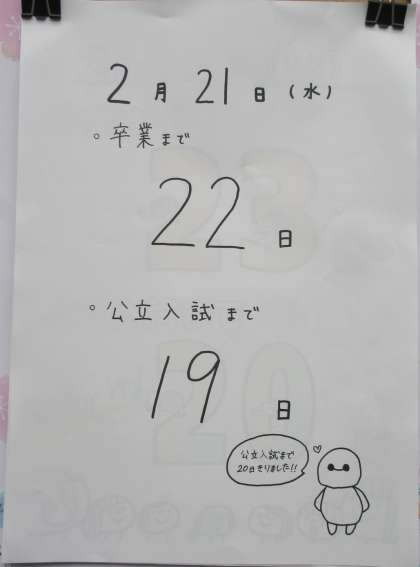 2月21日(水)
。卒業まで
22日
。公立入試まで
19日
公立入試まで
20日きりました!!